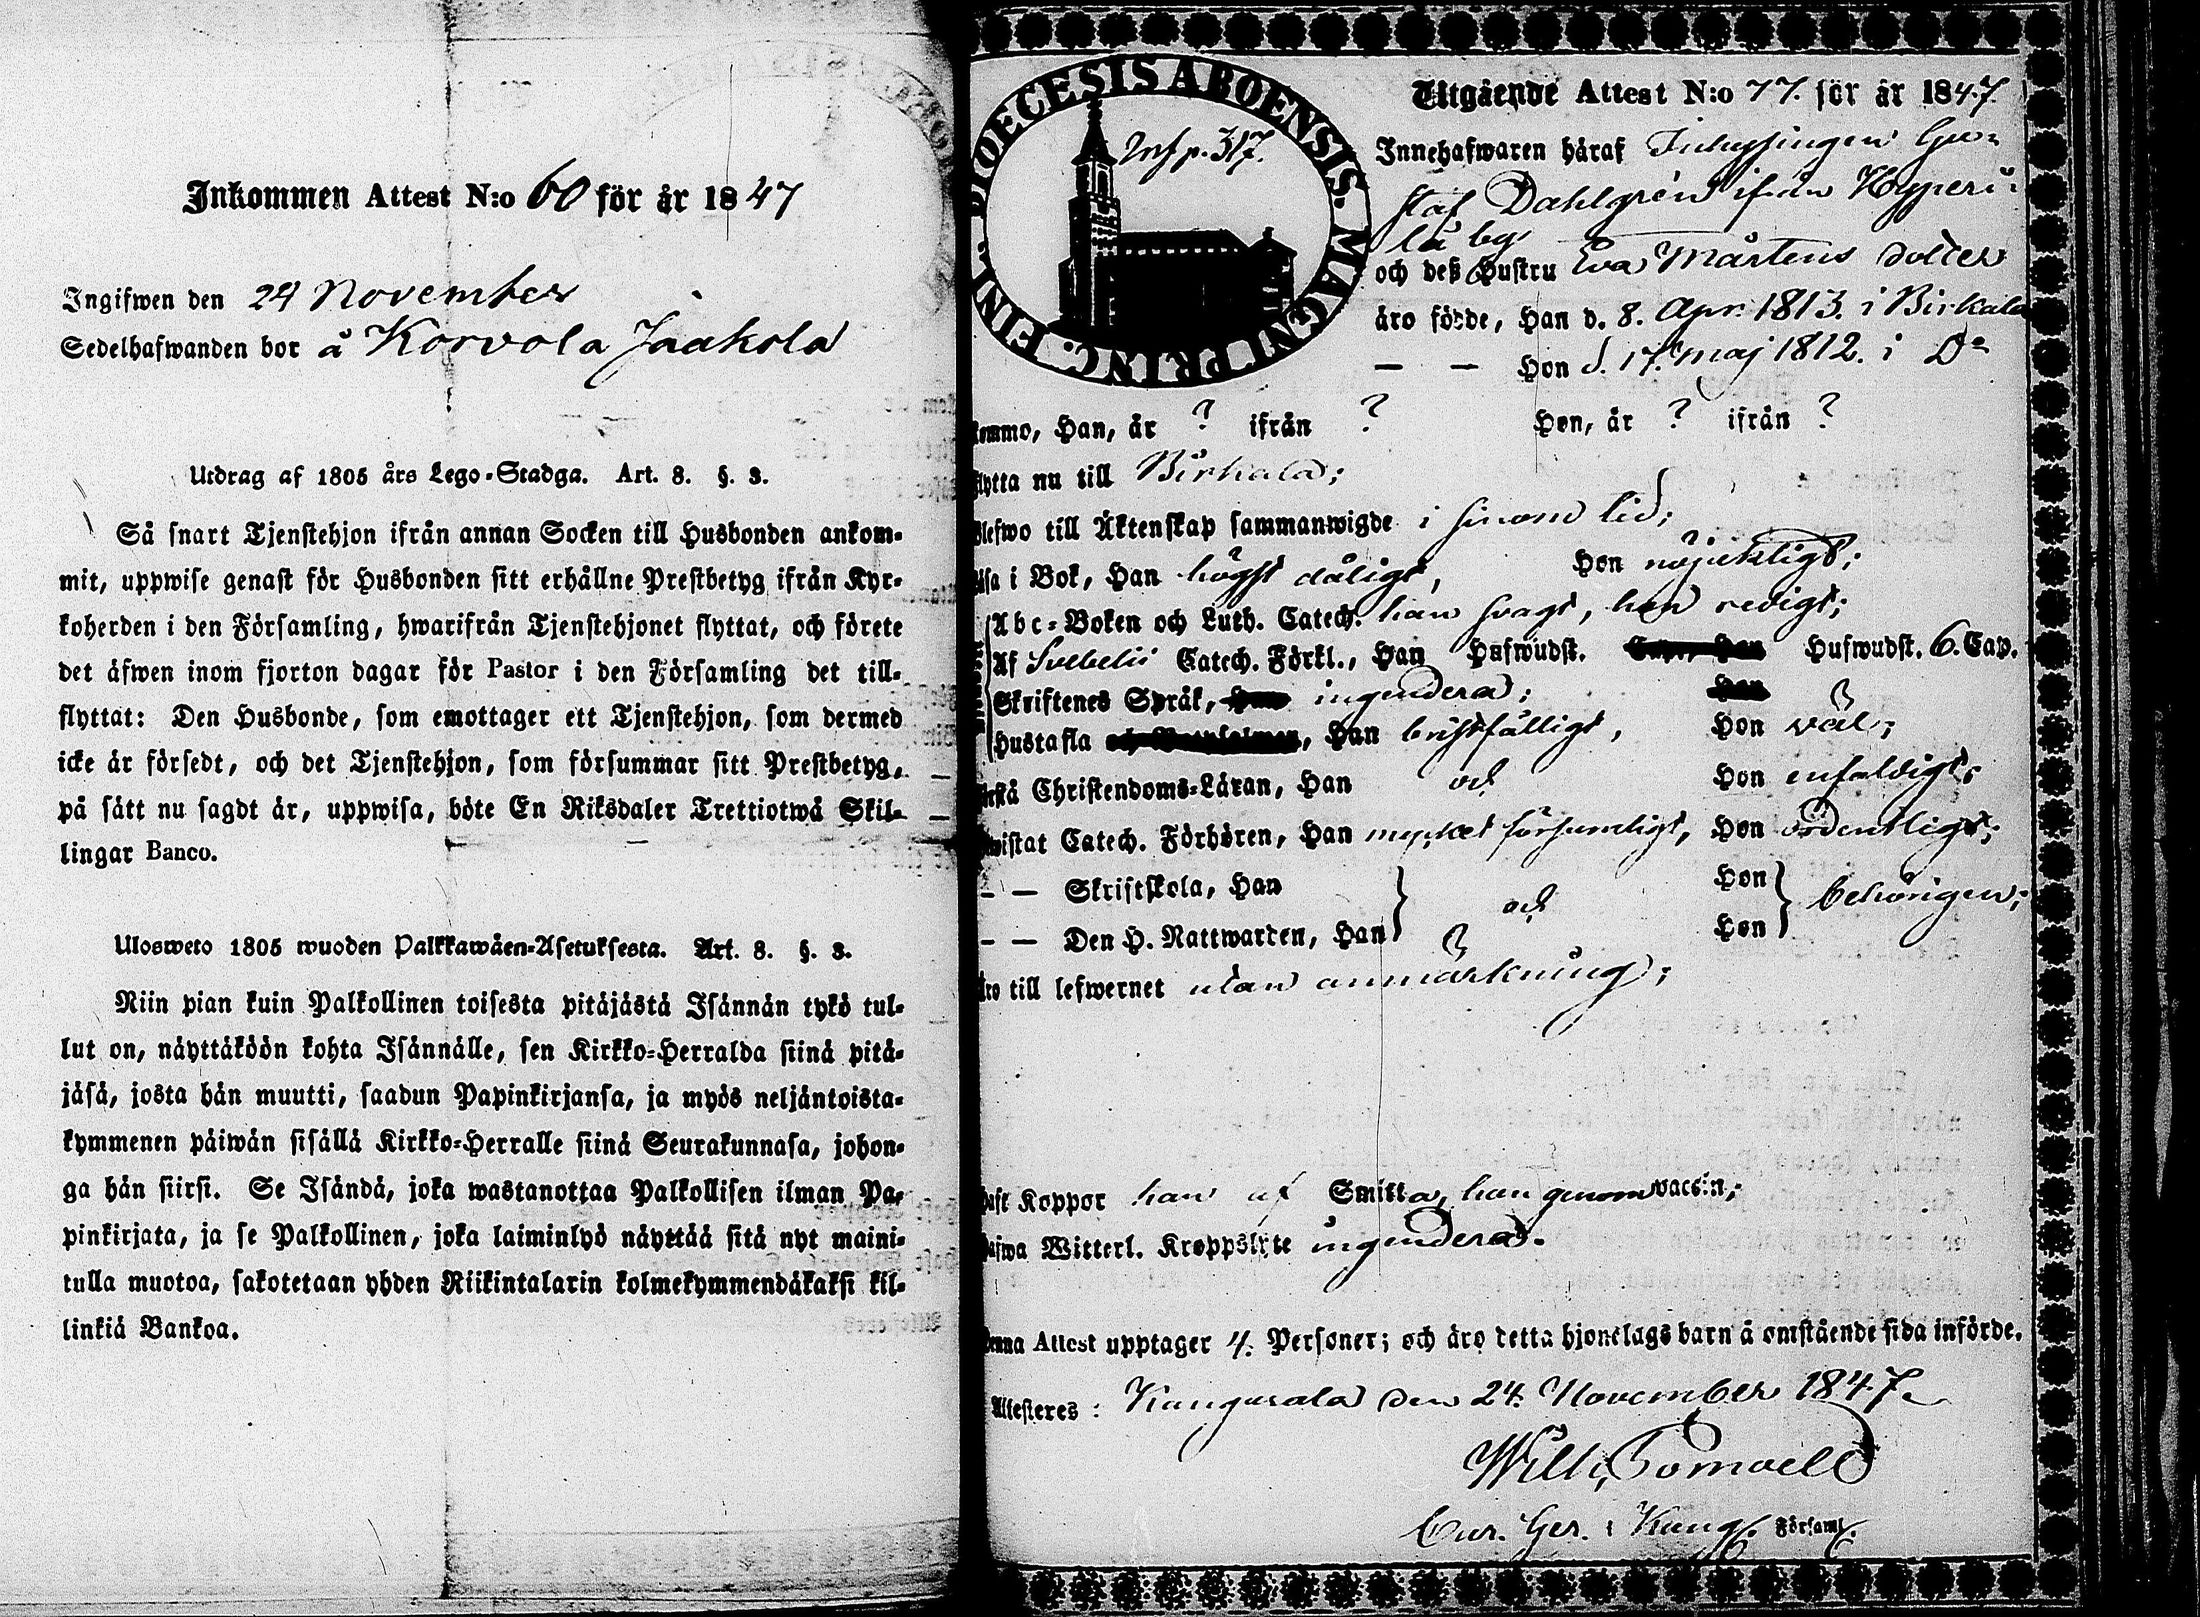 Inkommen Attest N:o 60 för år 1847
Ingifwen den 24 November
Sedelhafwanden bor å Korvola Jaakola
Utdrag af 1805 års Lego-Stadga. Art. 8. §. 3.
Så snart Tjenstehjon ifrån annan Socken till Husbonden ankom-
mit, uppwise genast för Husbonden sitt erhållne Prestbetyg ifrån Kyr-
koherden i den Församling, hwarifrån Tjenstehjonet flyttat, och förete
det äfwen inom fjorton dagar för Pastor i den Församling det till-
flyttat: Den Husbonde, som emottager ett Tjenstehjon, som dermed
icke är försedt, och det Tjenstehjon, som försummar sitt Prestbetyg,
på sätt nu sagdt är, uppwisa, böte En Riksdaler Trettiotwå Skil-
lingar Banco.
Ulosweto 1805 wuoden Palkkawäen-Asetuksesta. Art. 8. §. 3.
Niin pian kuin Palkollinen toisesta pitäjästä Isännän tykö tul-
lut on, näyttäköön kohta Isännälle, sen Kirkko-Herralda siinä pitä-
jäsä, josta hän muutti, saadun Papinkirjansa, ja myös neljäntoista-
kymmenen päiwän sisällä Kirkko-Herralle siinä Seurakunnasa, johon-
ga hän siirsi. Se Isändä, joka wastanottaa Palkollisen ilman Pa-
pinkirjata, ja se Palkollinen, joka laiminlyö näyttää sitä nyt maini-
tulla muotoa, sakotetaan yhden Riikintalarin kolmekymmendäkaksi kil-
linkiä Bankoa.
DIOECESIS ABOENSIS. MAGNI PRINC. FINL.
Inf p. 317.
Utgående Attest N:o 77. för år 1847.
Innehafwaren häraf Inhysingen Gu-
staf Dahlgrén ifrån Hyperi-
lä by
och deß Hustru Eva Mårtens dotter
äro födde, Han d. 8. Apr. 1813. i Birkala
— — Hon d. 17. Maj 1812. i Do
komme, Han, år ? ifrån ? Hon, år ? ifrån ?
flytta nu till Birkala;
Blefwo till Äktenskap sammanwigde i sinom tid;
läsa i Bok, Han högst dåligt, Hon nöjaktligt;
Abc-Boken och Luth. Catech. han svagt, hon redigt;
Af Svebelii Catech. Förkl., Han Hufwudst. Hufwudst. 6. Cap.
Skriftenes Språk, ingendera;
Hustafla, Han bristfälligt, Hon väl;
förstå Christendoms-Läran, Han och Hon enfaldigt;
bewistat Catech. Förhören, Han mycket försumligt, Hon ordentligt;
— — Skriftskola, Han och Hon behörigen;
— — Den H. Nattwarden, Han Hon
äro till lefwernet utan anmärkning;
haft Koppor han af Smitta, hon genom vaccin;
hafwa Witterl. Kroppslyte ingendera.
Denna Attest upptager 4. Personer; och äro detta hjonelags barn å omstående sida införde.
Attesteres: Kangasala den 24. November 1847.
Cur. Ger. i Kang. Församl.